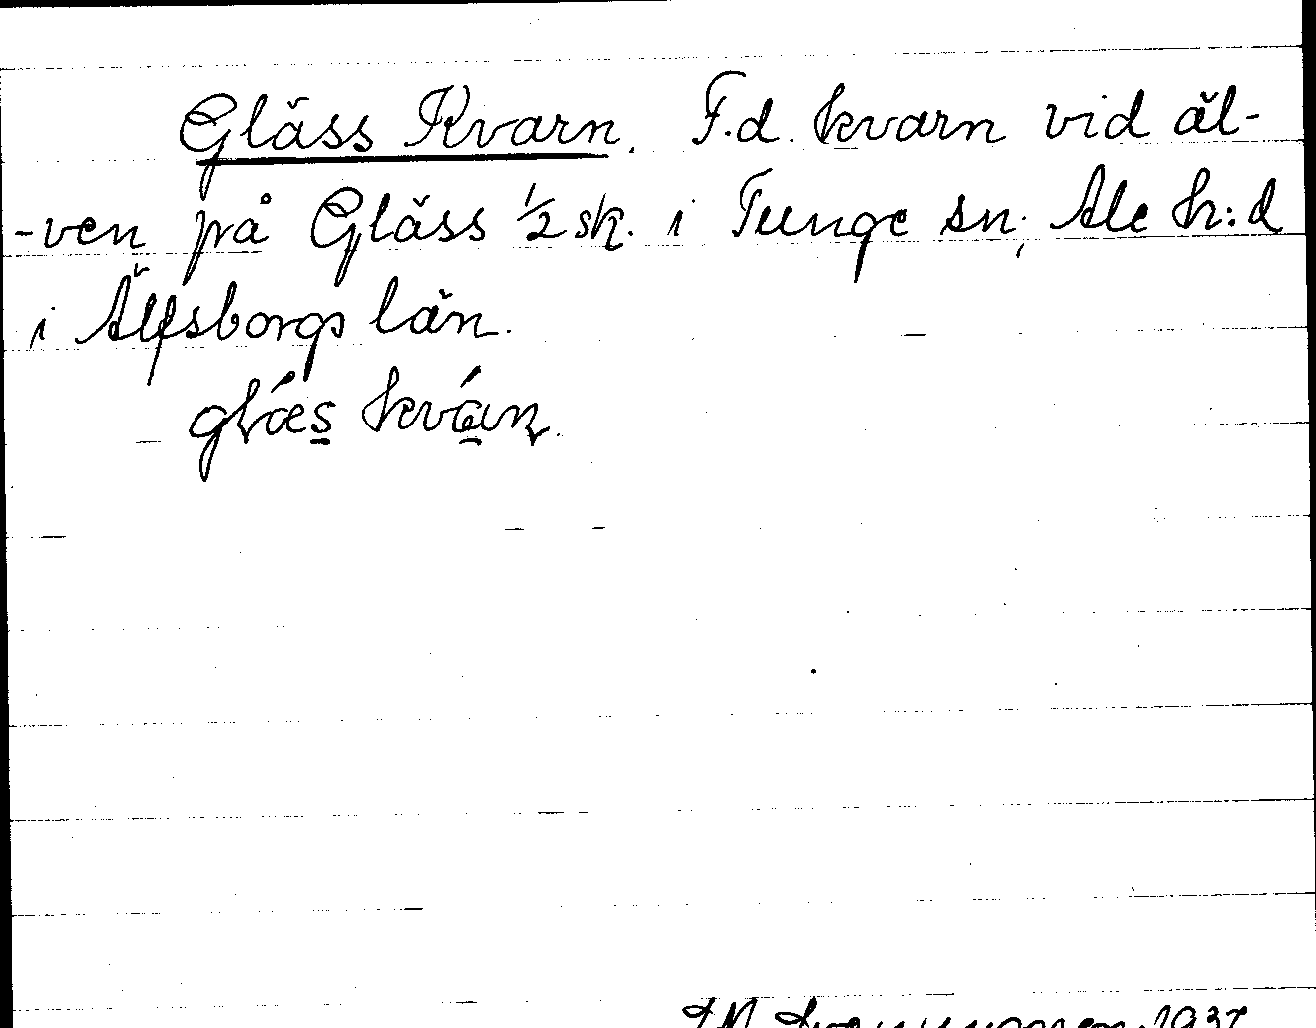 Gläss Kvarn. F.d. kvarn vid äl-
-ven på Gläss 1/2 sk. i Tunge sn; Ale h:d
i Älfsborgs län.
glǽs kván.